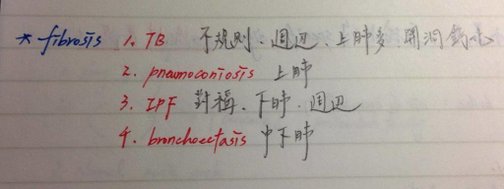 * fibrosis 1. TB 不規則、週边、上肺多 開洞 鈣化
2. pneumoconiosis 上肺
3. IPF 對稱、下肺、週边
4. bronchoectasis 中下肺